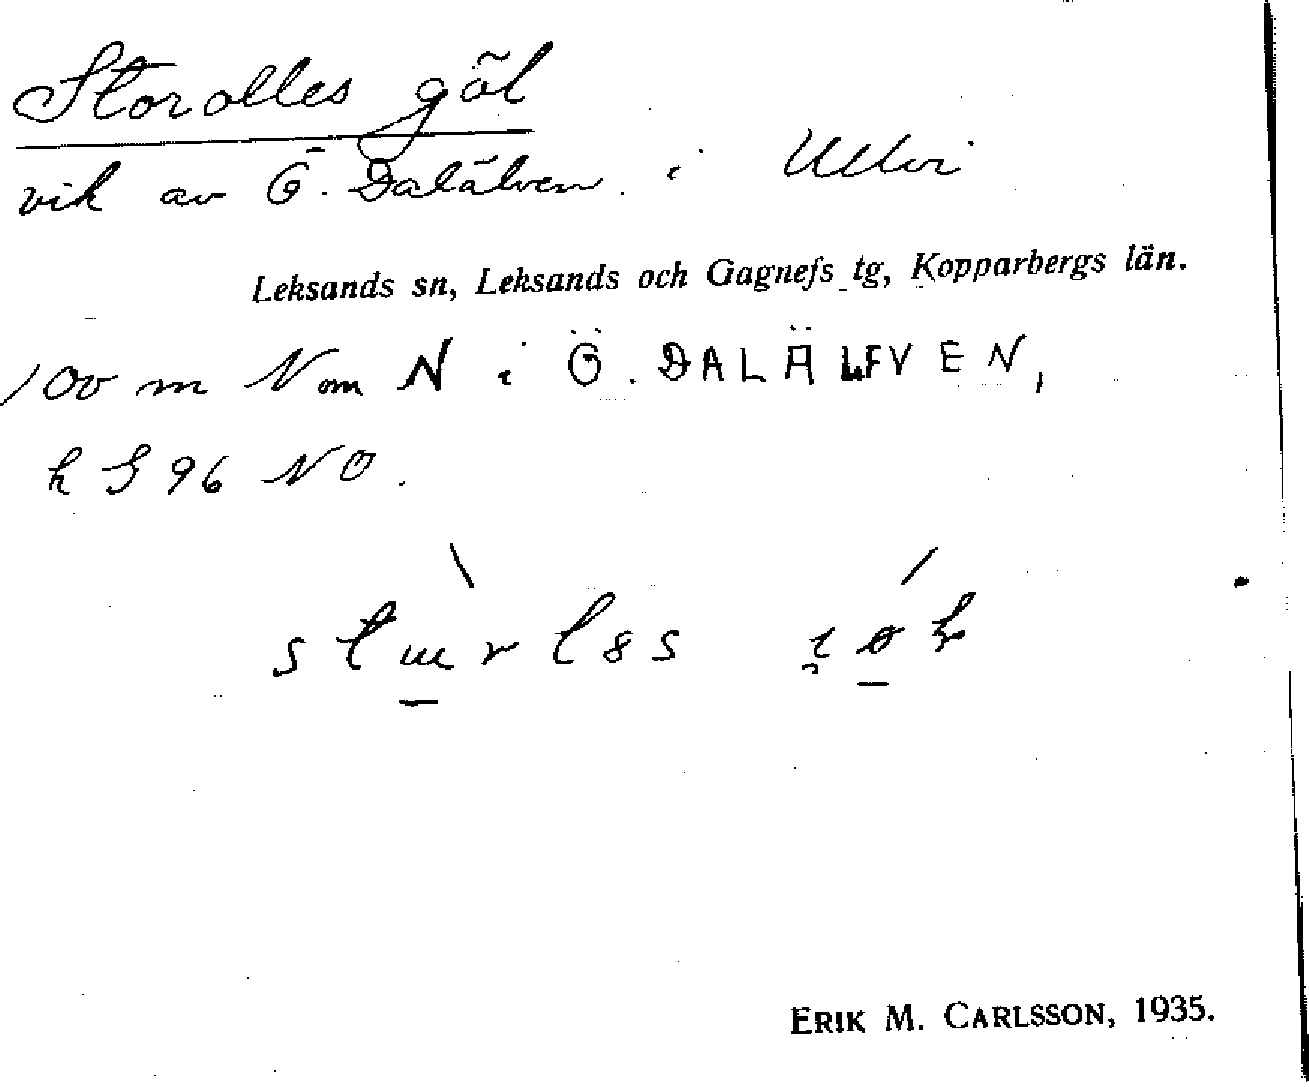 Storolles göl
vik av Ö. Dalälven i Ullvi
Leksands sn, Leksands och Gagnefs tg, Kopparbergs län.
100 m N om N i Ö. DALÄLFVEN,
k S 96 NO.
ERIK M. CARLSSON, 1935.